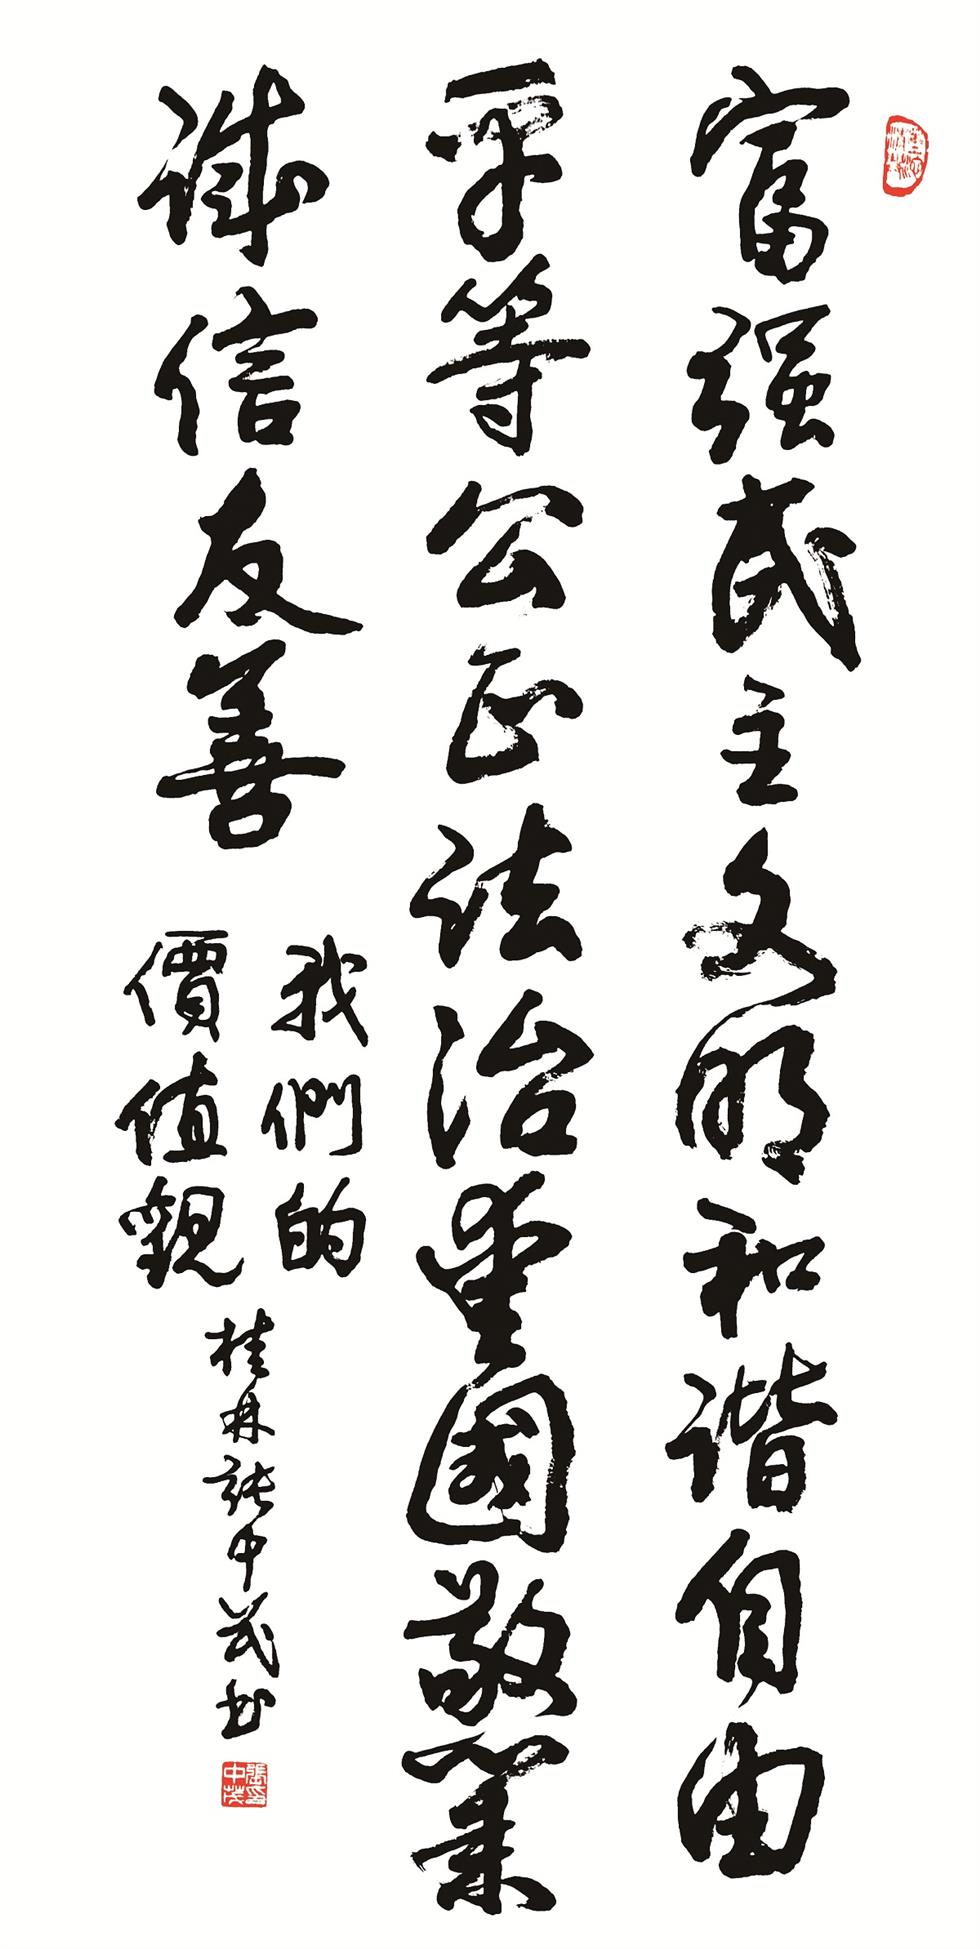 富强民主文明和谐自由
平等公正法治爱國敬業
诚信友善
我們的
價值觀
桂林張中茂书
張印中茂